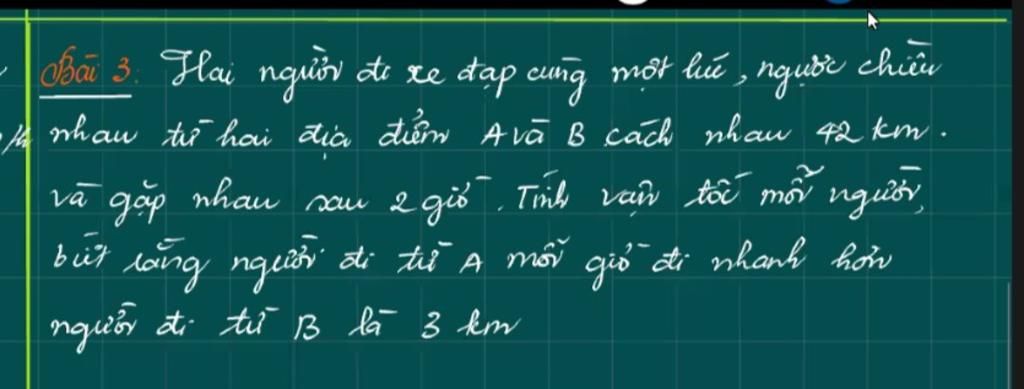 Bài 3: Hai người đi xe đạp cùng một lúc, ngược chiều
nhau từ hai địa điểm A và B cách nhau 42 km.
và gặp nhau sau 2 giờ. Tính vận tốc mỗi người,
biết rằng người đi từ A mỗi giờ đi nhanh hơn
người đi từ B là 3 km